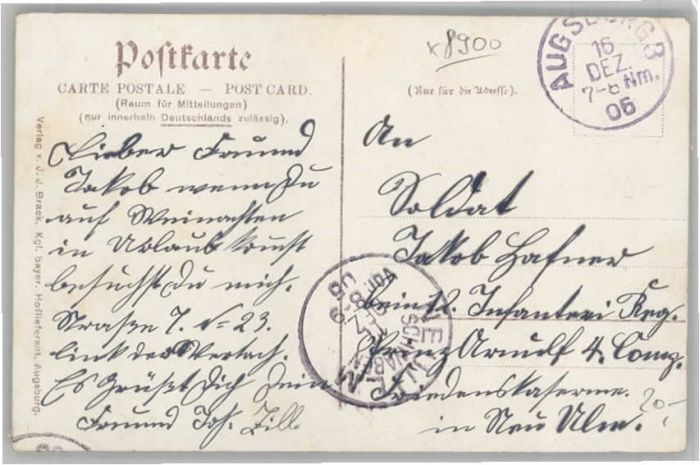 Postkarte
CARTE POSTALE — POST CARD.
(Raum für Mitteilungen)
(nur innerhalb Deutschlands zulässig).
(Nur für die Adresse).
x8900
AUGSBURG 3
16
DEZ.
7-8 Nm.
06
Verlag v. J. J. Brack, Kgl. bayer. Hoflieferant, Augsburg.
Lieber Freund
Jakob wenn Du
auf Weinachten
in Urlaub komst
besuchst du mich.
Straße 7. No 23.
link der Wertach.
Es Grüßt Dich Dein
Freund Joh. Zill.
An
Soldat
Jakob Hafner
Infanteri Reg.
Prinz Arnulf 4. Comp.
Friedenskaserne.
in Neu Ulm.
20-